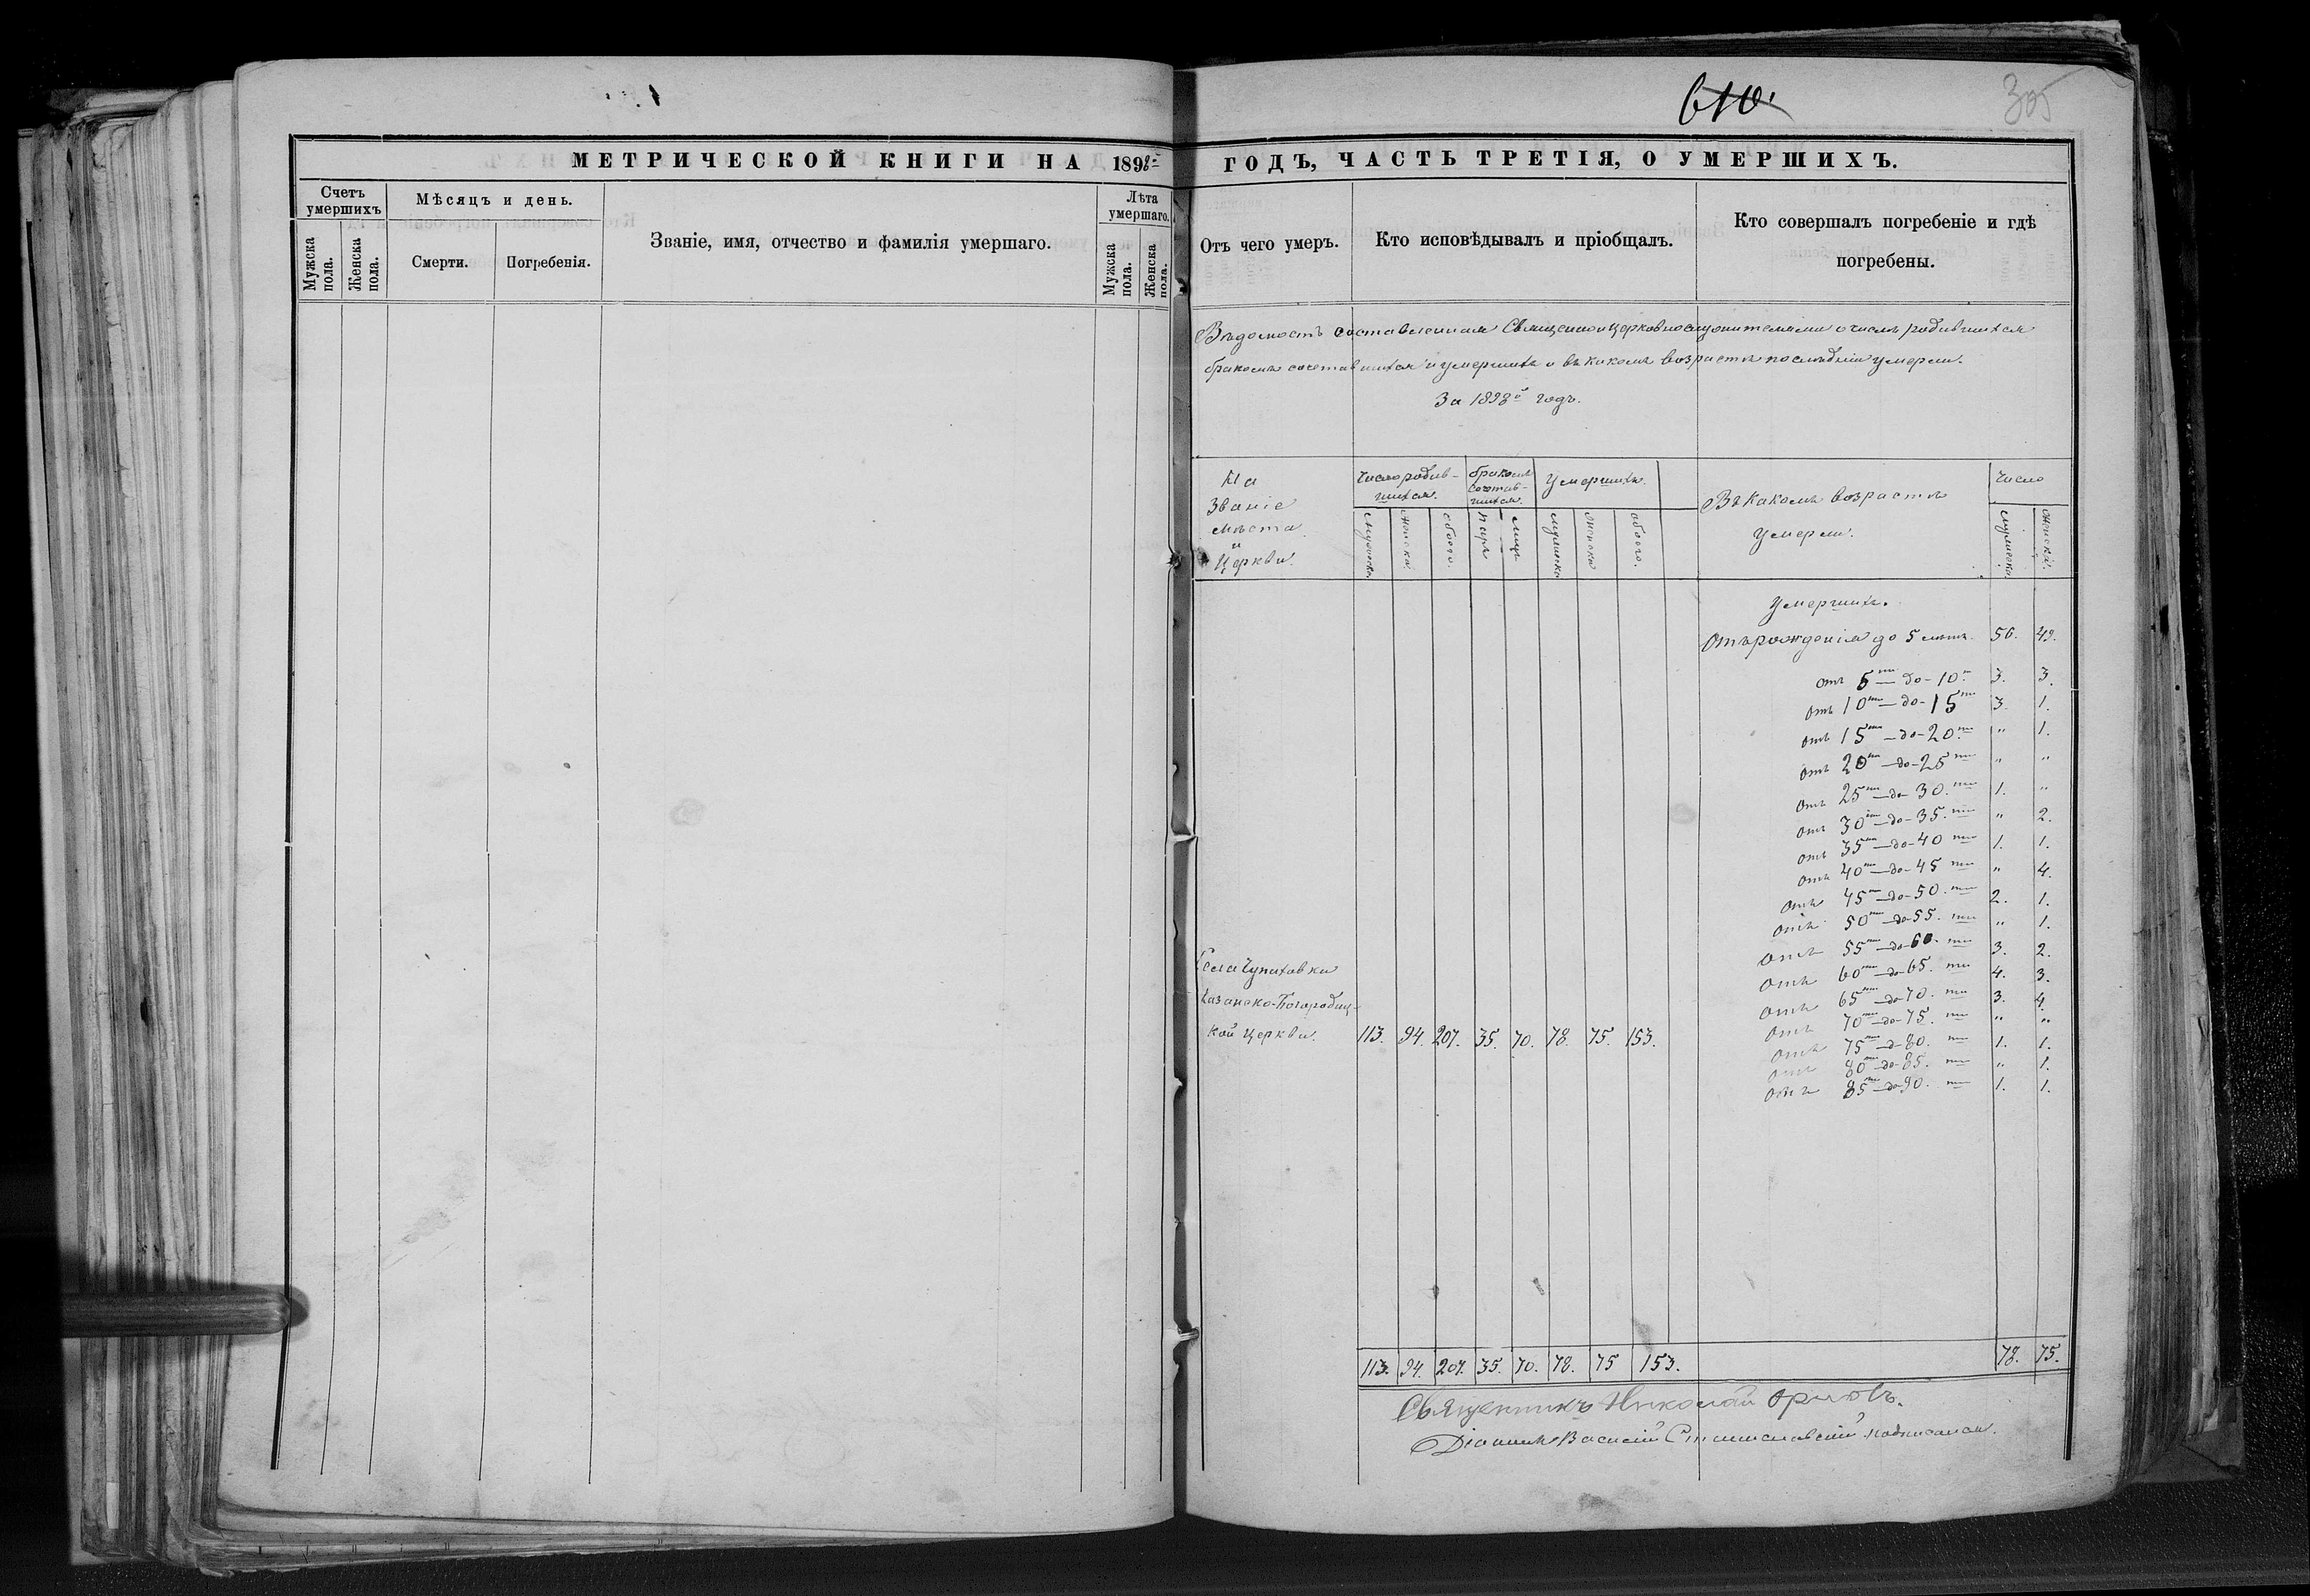 610.
305
МЕТРИЧЕСКОЙ КНИГИ НА 1898й
ГОДЪ, ЧАСТЬ ТРЕТІЯ, О УМЕРШИХЪ.
Счетъ умершихъ
Мужска пола.
Женска пола.
Мѣсяцъ и день.
Смерти.
Погребенія.
Званіе, имя, отчество и фамилія умершаго.
Лѣта умершаго.
Мужска пола.
Женска пола.
Отъ чего умеръ.
Кто исповѣдывалъ и пріобщалъ.
Кто совершалъ погребеніе и гдѣ
погребены.
Вѣдомость составленная Священноицерковнослужителями о числѣ родившихся
бракомъ сочетавшихся и умершихъ и въ какомъ возрастѣ послѣдніи умерли.
За 1898й годъ.
На
Званіе
мѣста
и
Церкви.
Число родив-
шихся.
мужска
женска
обоего.
бракомъ
сочетав-
шихся.
паръ
лицъ
Умершихъ.
мужска
женска
обоего.
Въ какомъ возрастѣ
умерли.
Число
мужска.
женска.
Умершихъ.
Отъ рожденія до 5 лѣтъ. 56. 49.
отъ 5ти — до - 10ти 3. 3.
отъ 10ти — до - 15ти 3. 1.
отъ 15ти — до - 20ти " 1.
отъ 20ти — до - 25ти " "
отъ 25ти — до 30.ти 1. "
отъ 30ти — до - 35.ти " 2.
отъ 35ти — до - 40ти 1. 1.
отъ 40ти — до - 45ти " 4.
отъ 45ти — до - 50.ти 2. 1.
отъ 50ти — до - 55.ти " 1.
отъ 55ти — до - 60.ти 3. 2.
отъ 60ти — до - 65.ти 4. 3.
отъ 65ти — до - 70.ти 3. 4.
отъ 70ти — до - 75.ти " "
отъ 75ти — д - 80.ти 1. 1.
отъ 80ти — до - 85.ти " 1.
отъ 85ти — до - 90.ти 1. 1.
Села Чупаховки
Казанско-Богородиц-
кой Церкви. 113. 94. 207. 35. 70. 78. 75. 153.
113. 94. 207. 35. 70. 78. 75 153. 78. 75.
Священникъ Николай Орловъ.
Діаконъ Василій Станиславскій подписался.